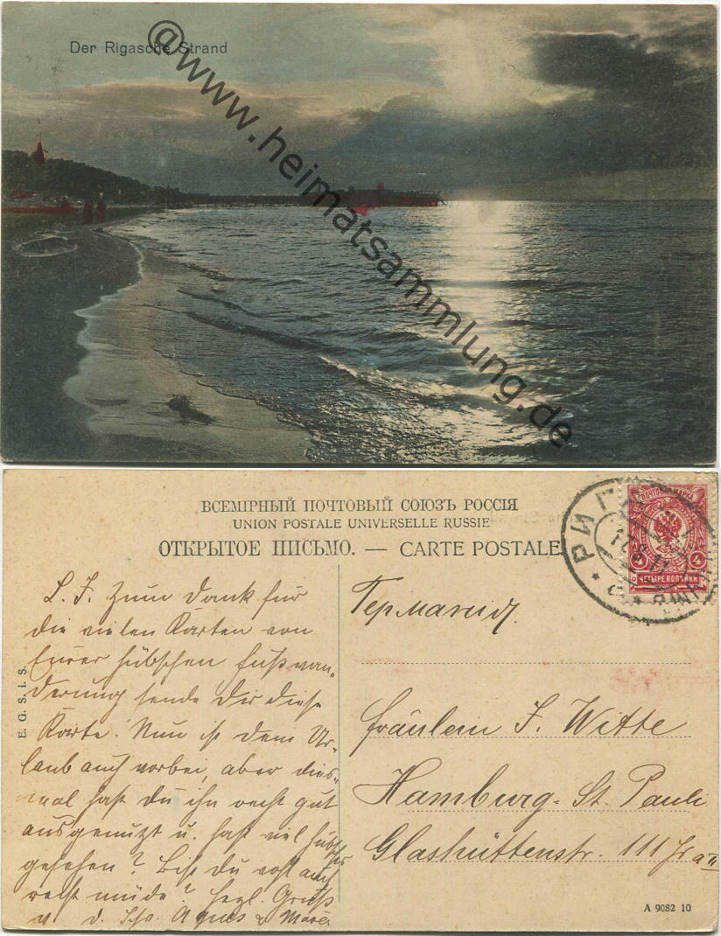 Der Rigasche Strand
@www.heimatsammlung.de
ВСЕМІРНЫЙ ПОЧТОВЫЙ СОЮЗЪ РОССІЯ
UNION POSTALE UNIVERSELLE RUSSIE
ОТКРЫТОЕ ПИСЬМО. — CARTE POSTALE
РИГА
4 4
ЧЕТЫРЕ КОПѢЙКИ
L. F. Zum Dank für
die vielen Karten von
Eurer hübschen Fußwan-
derung sende Dir diese
Karte. Nun ist dein Ur-
laub auch vorbei, aber dies-
mal hast du ihn recht gut
ausgenutzt u. hast viel hübsches
gesehen? Bist du wohl auch
recht müde? Herzl. Gruß
v. d. Agnes
E. G. S. I. S.
Германія.
Fräulein F. Witte
Hamburg-St. Pauli
Glashüttenstr. 111
A 9082 10